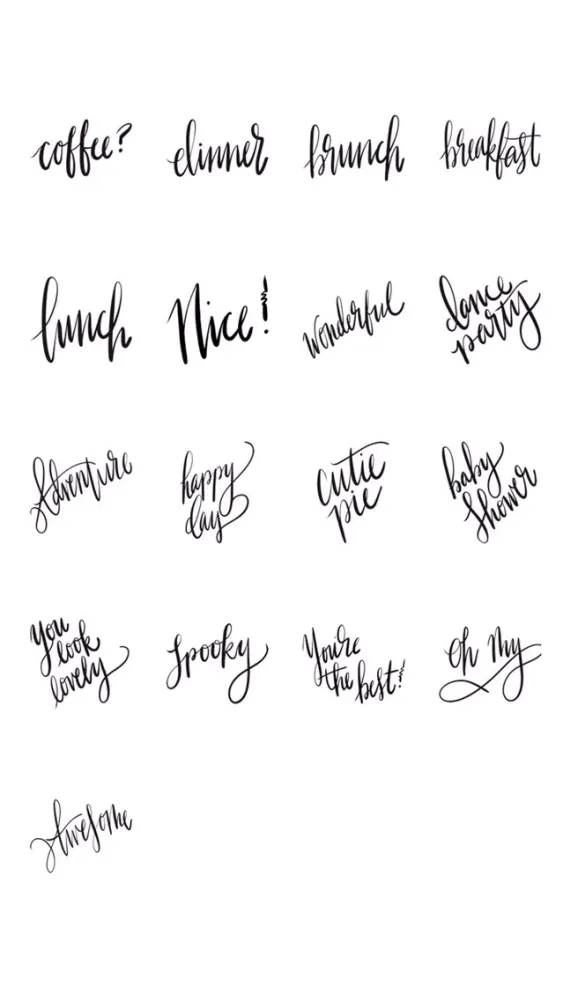 coffee?
dinner
brunch
breakfast
lunch
Nice!
Wonderful
dance
party
Adventure
happy
day
cutie
pie
baby
shower
you
look
lovely
spooky
You're
the best!
Oh My
Awesome